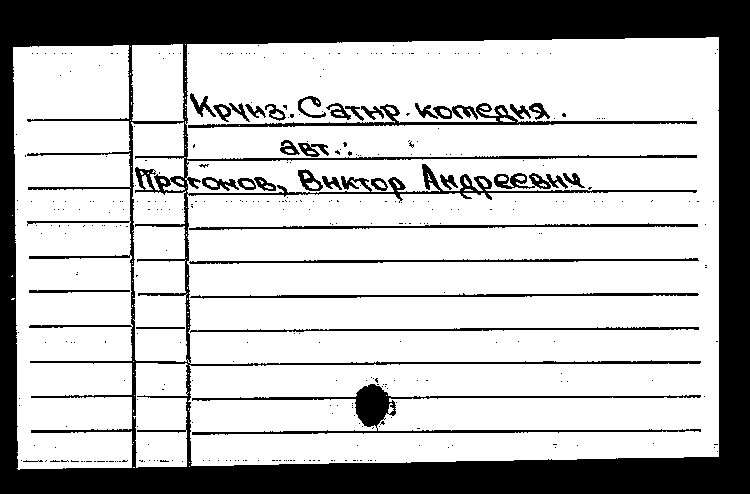 Круиз: Сатир. комедия.
авт.:
Прогонов, Виктор Андреевич.